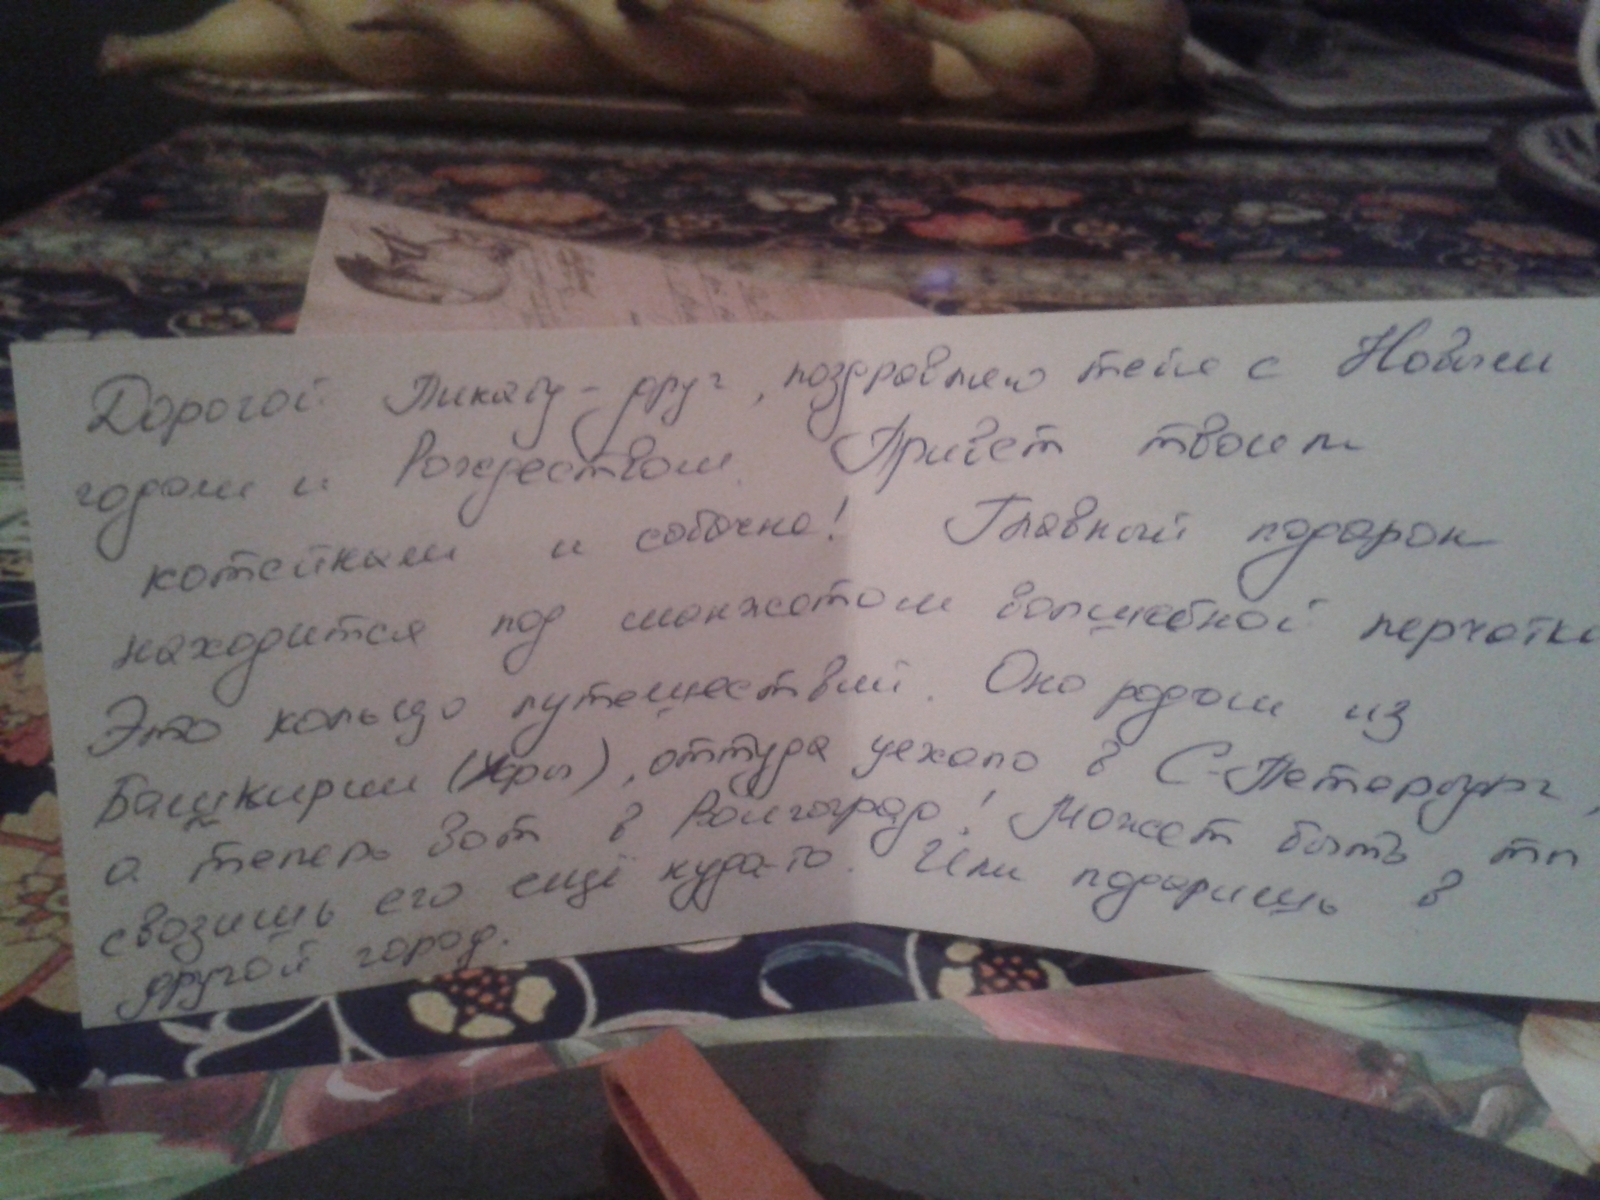 Дорогой Пикачу-друг, поздравляю тебя с Новым
годом и Рождеством. Привет твоим
котейкам и собачке! Главный подарок
находится под манжетом волшебной перчатки
Это кольцо путешествий. Оно родом из
Башкирии (Уфы), оттуда уехало в С-Петербург,
а теперь вот в Волгоград! Может быть, ты
свозишь его ещё куда-то. Или подаришь в
другой город.